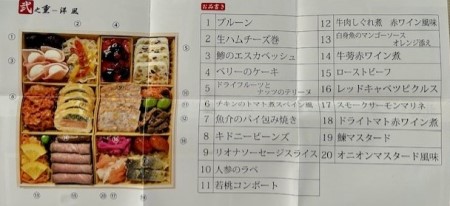 弐之重ー洋風
お品書き
1 プルーン
2 生ハムチーズ巻
3 鯵のエスカベッシュ
4 ベリーのケーキ
5 ドライフルーツと
ナッツのテリーヌ
6 チキンのトマト煮スペイン風
7 魚介のパイ包み焼き
8 キドニービーンズ
9 リオナソーセージスライス
10 人参のラペ
11 若桃コンポート
12 牛肉しぐれ煮 赤ワイン風味
13 白身魚のマンゴーソース
オレンジ添え
14 牛蒡赤ワイン煮
15 ローストビーフ
16 レッドキャベツピクルス
17 スモークサーモンマリネ
18 ドライトマト赤ワイン煮
19 鰊マスタード
20 オニオンマスタード風味